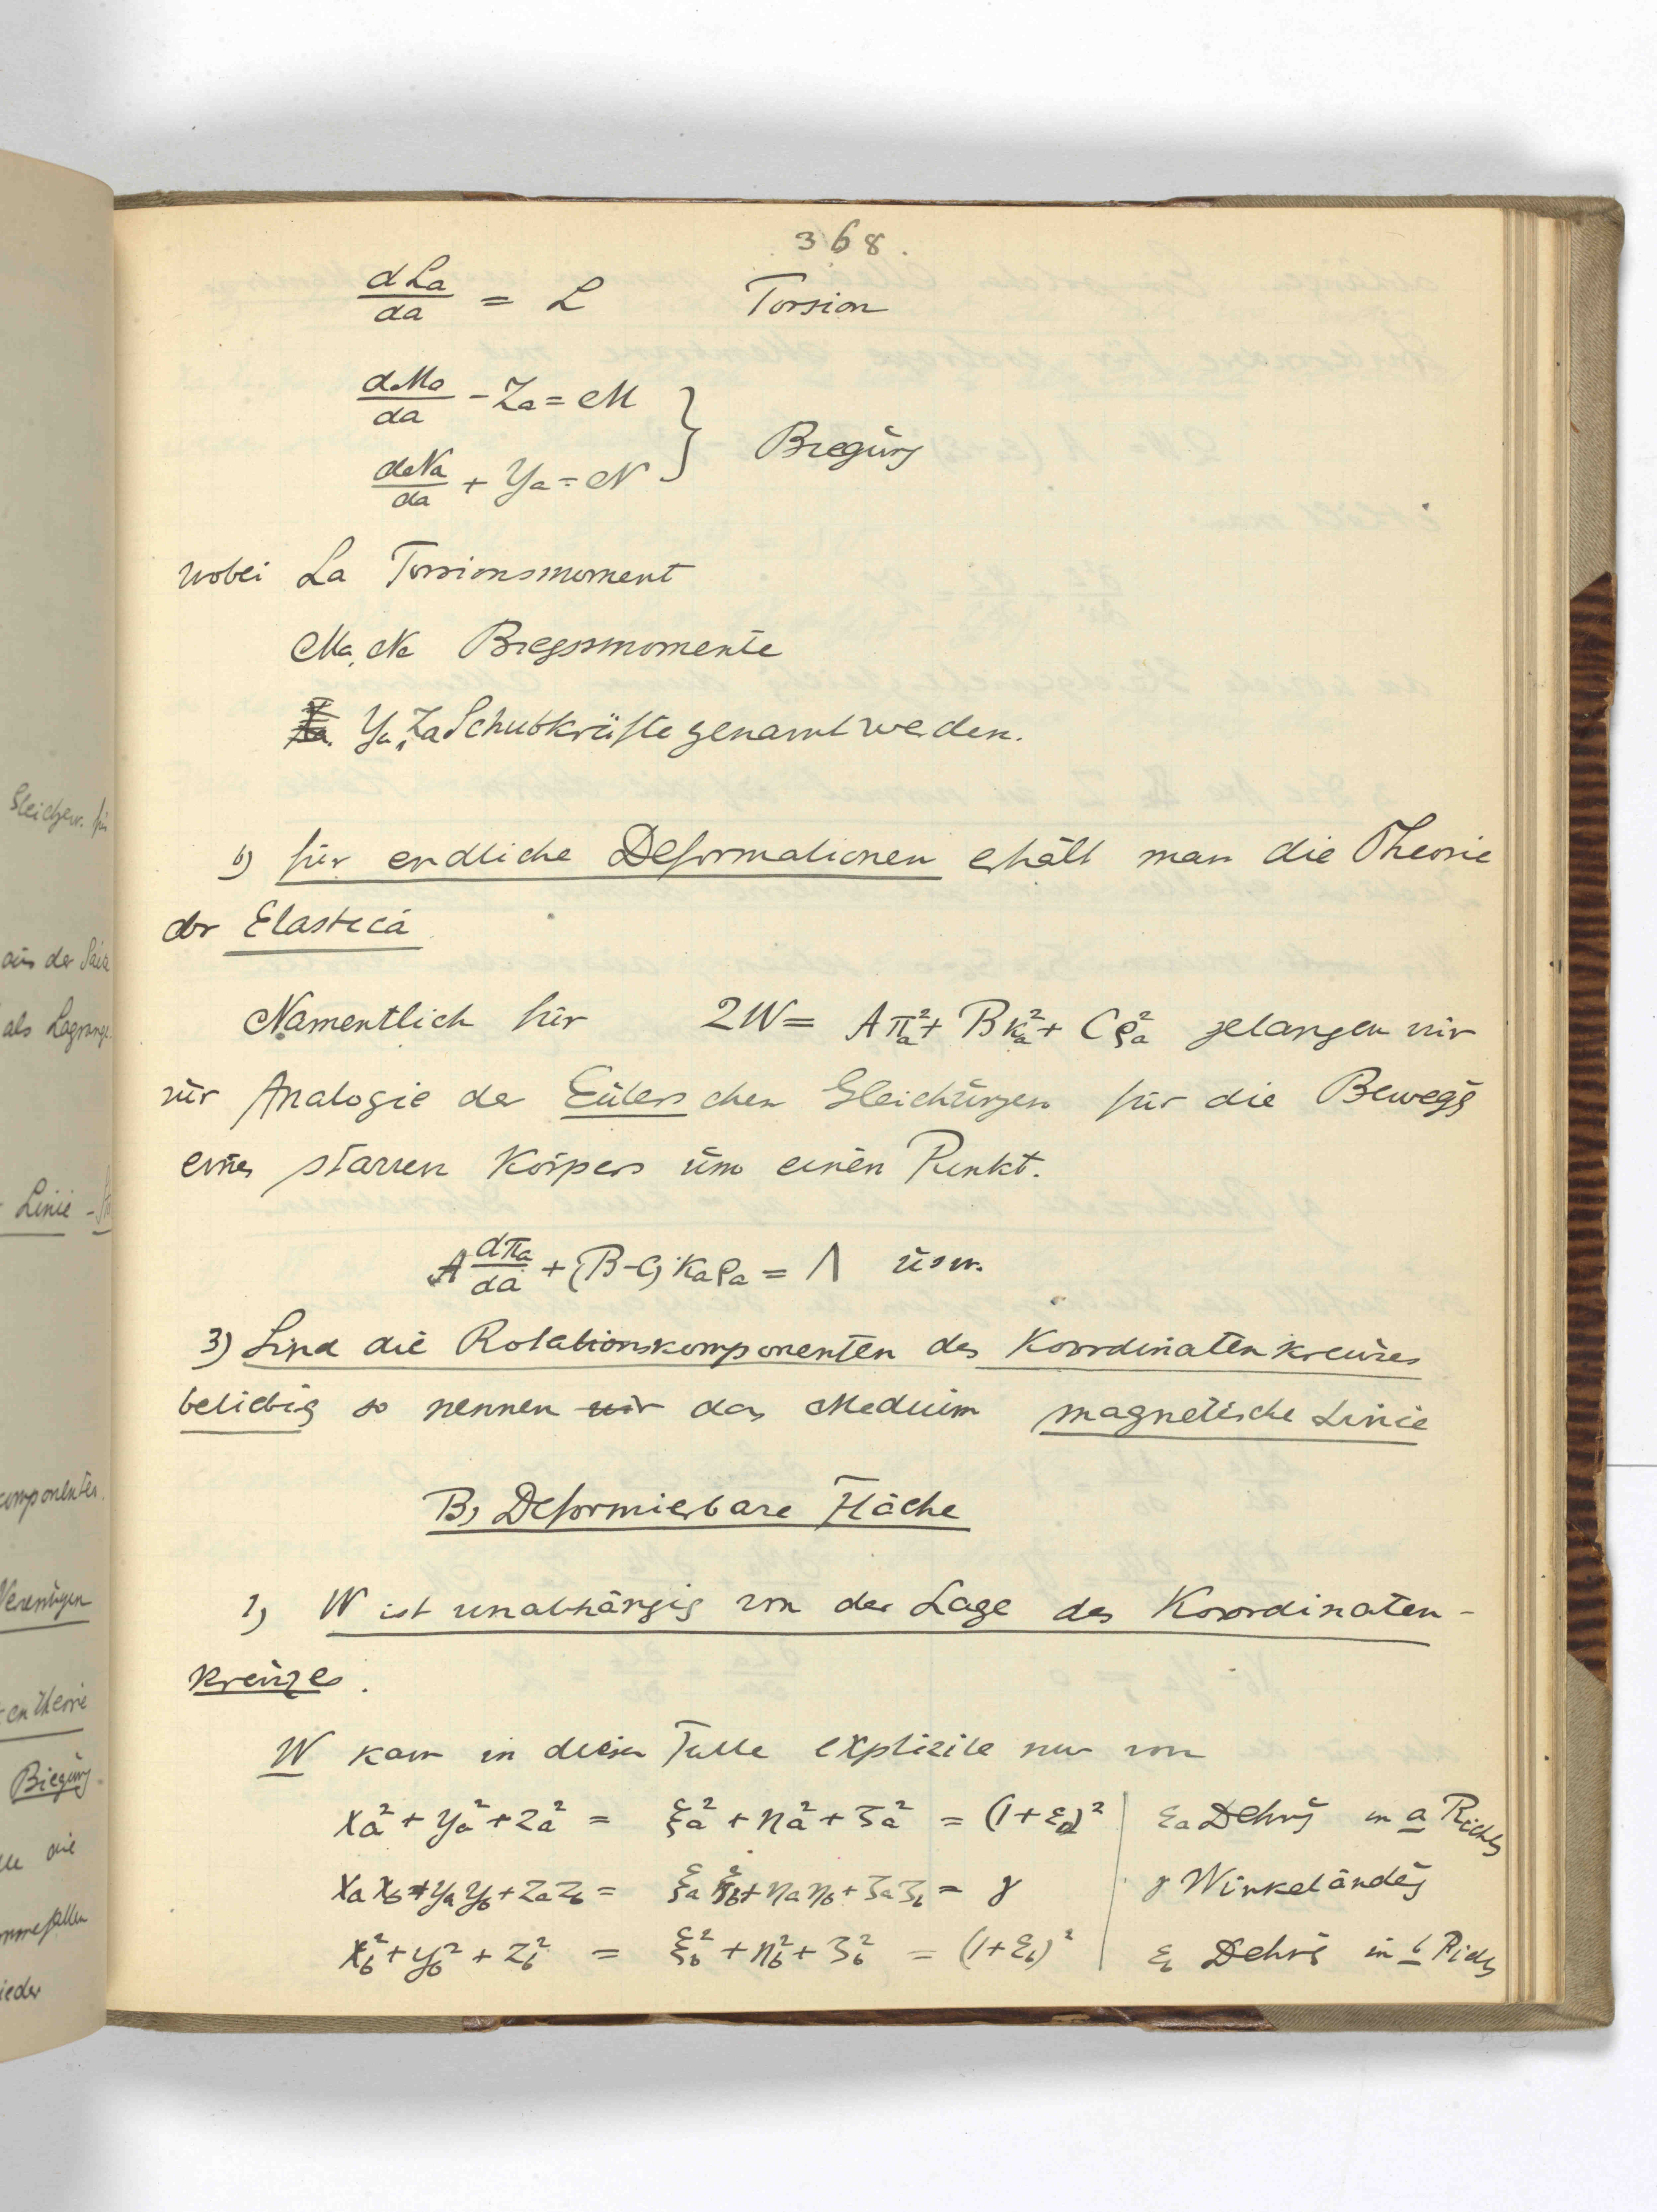 368.
dLa/da = L Torsion
dMa/da - Za = M
dNa/da + Ya = N } Biegung
wobei La Torsionsmoment
Ma, Na Biegsmomente
Ya, Za Schubkräfte genannt werden.
b) für endliche Deformationen erhält man die Theorie
der Elastica
Namentlich für 2W = Aπa² + Bκa² + Cρa² gelangen wir
zur Analogie der Eulerschen Gleichungen für die Bewegg
eines starren Körpers um einen Punkt.
A dπa/da + (B-C) κaρa = Λ usw.
3) Sind die Rotationskomponenten des Koordinatenkreuzes
beliebig so nennen wir das Medium magnetische Linie
B) Deformierbare Fläche
1) W ist unabhängig von der Lage des Koordinaten-
kreuzes.
W kann in diesem Falle explizite nur von
xa² + ya² + za² = ξa² + ηa² + ζa² = (1+εa)² | εa Dehng in a Richtg
xaxb + yayb + zazb = ξaξb + ηaηb + ζaζb = γ | γ Winkeländg
xb² + yb² + zb² = ξb² + ηb² + ζb² = (1+εb)² | εb Dehng in b Richtg
Gleichgew. für
aus der
als Lagrange
Linie -
komponenten.
Biegung.
die
wieder